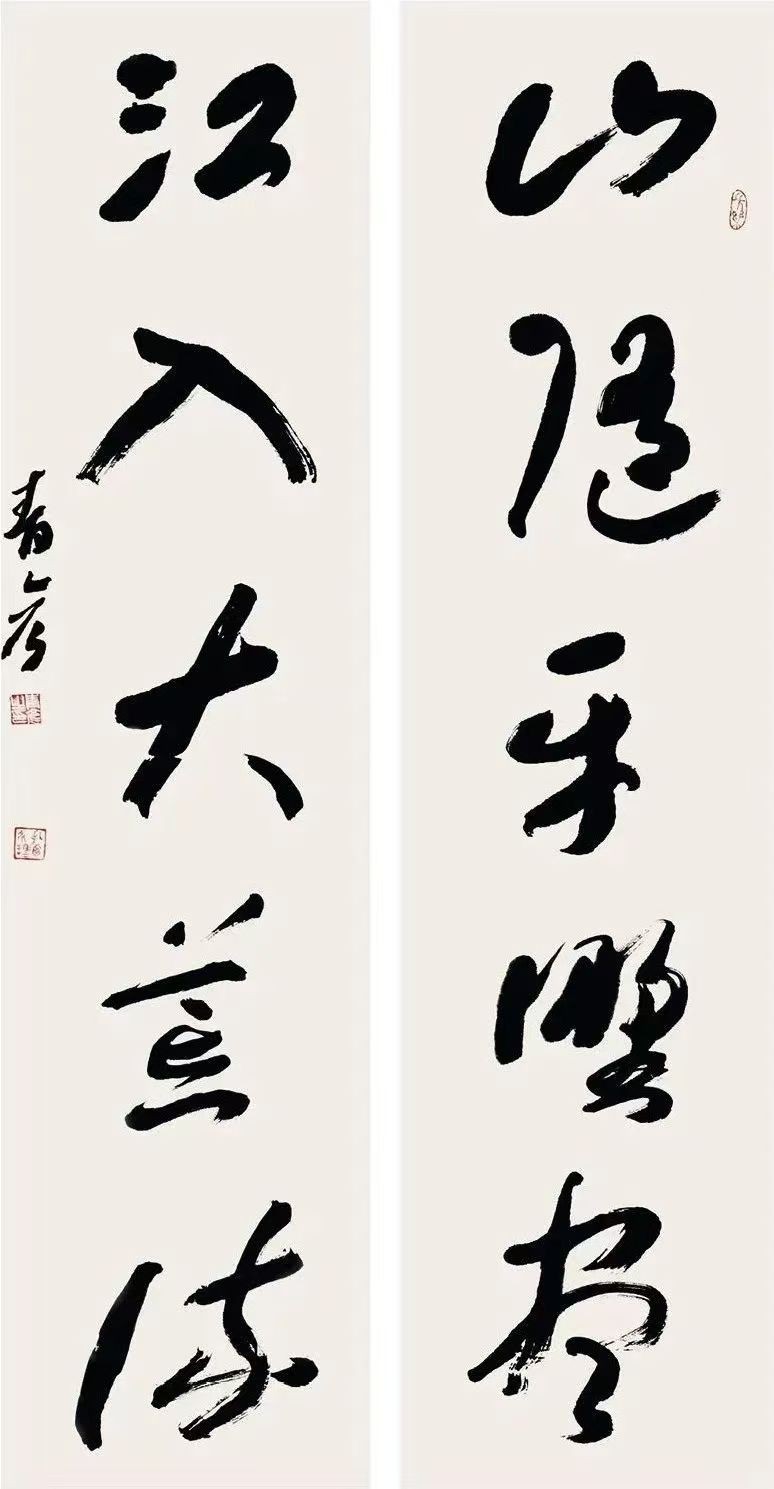 山随平野尽
江入大荒流